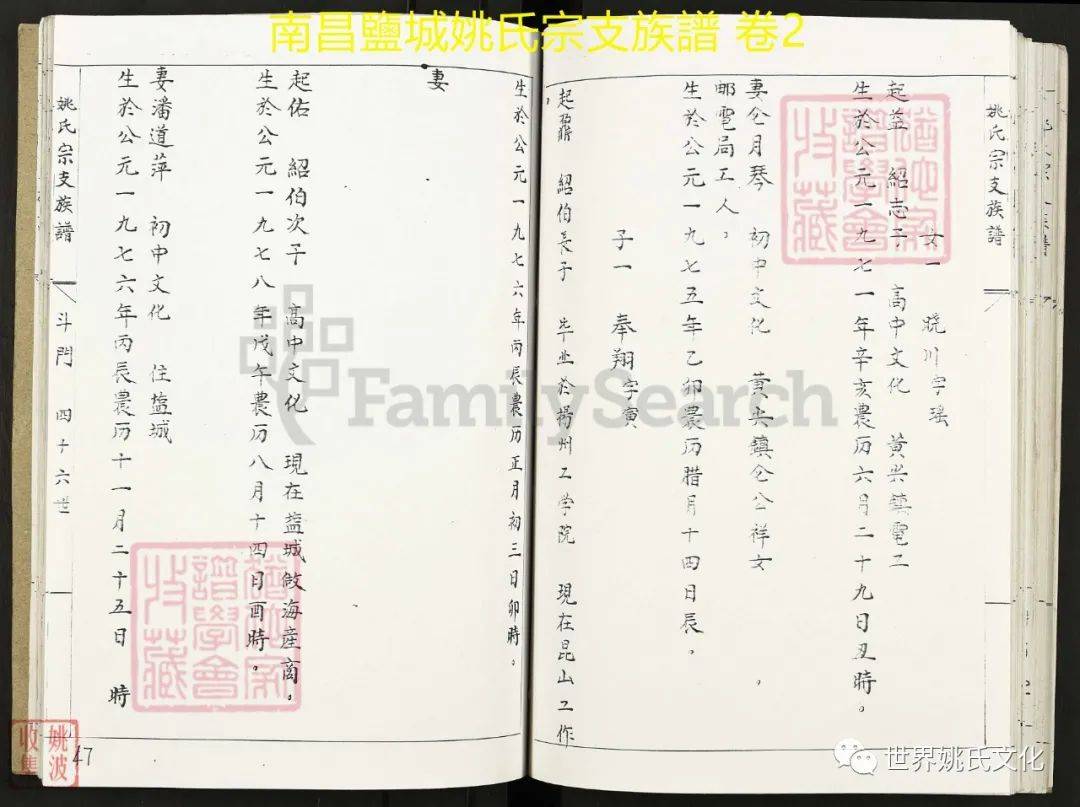 南昌鹽城姚氏宗支族譜 卷2
姚氏宗支族譜
女一 晓川字瑶
起益 紹志子 高中文化 黄尖鎮電工
生於公元一九七一年辛亥農历六月二十九日丑時。
妻仝月琴 初中文化 黄尖鎮仝公祥女，
邮電局工人，
生於公元一九七五年乙卯農历腊月十四日辰。
子一 奉翔字寅
起鼐 紹伯長子 毕业於揚州工学院 現在昆山工作，
生於公元一九七六年丙辰農历正月初三日卯時。
妻
起佑 紹伯次子 高中文化 現在盐城做海産商。
生於公元一九七八年戊午農历八月十四日酉時。
妻潘道萍 初中文化 住盐城
生於公元一九七六年丙辰農历十一月二十五日 時
姚氏宗支族譜 斗門 四十六世
47
FamilySearch
譜學會
收藏
譜學會
收藏
姚波
收集
世界姚氏文化